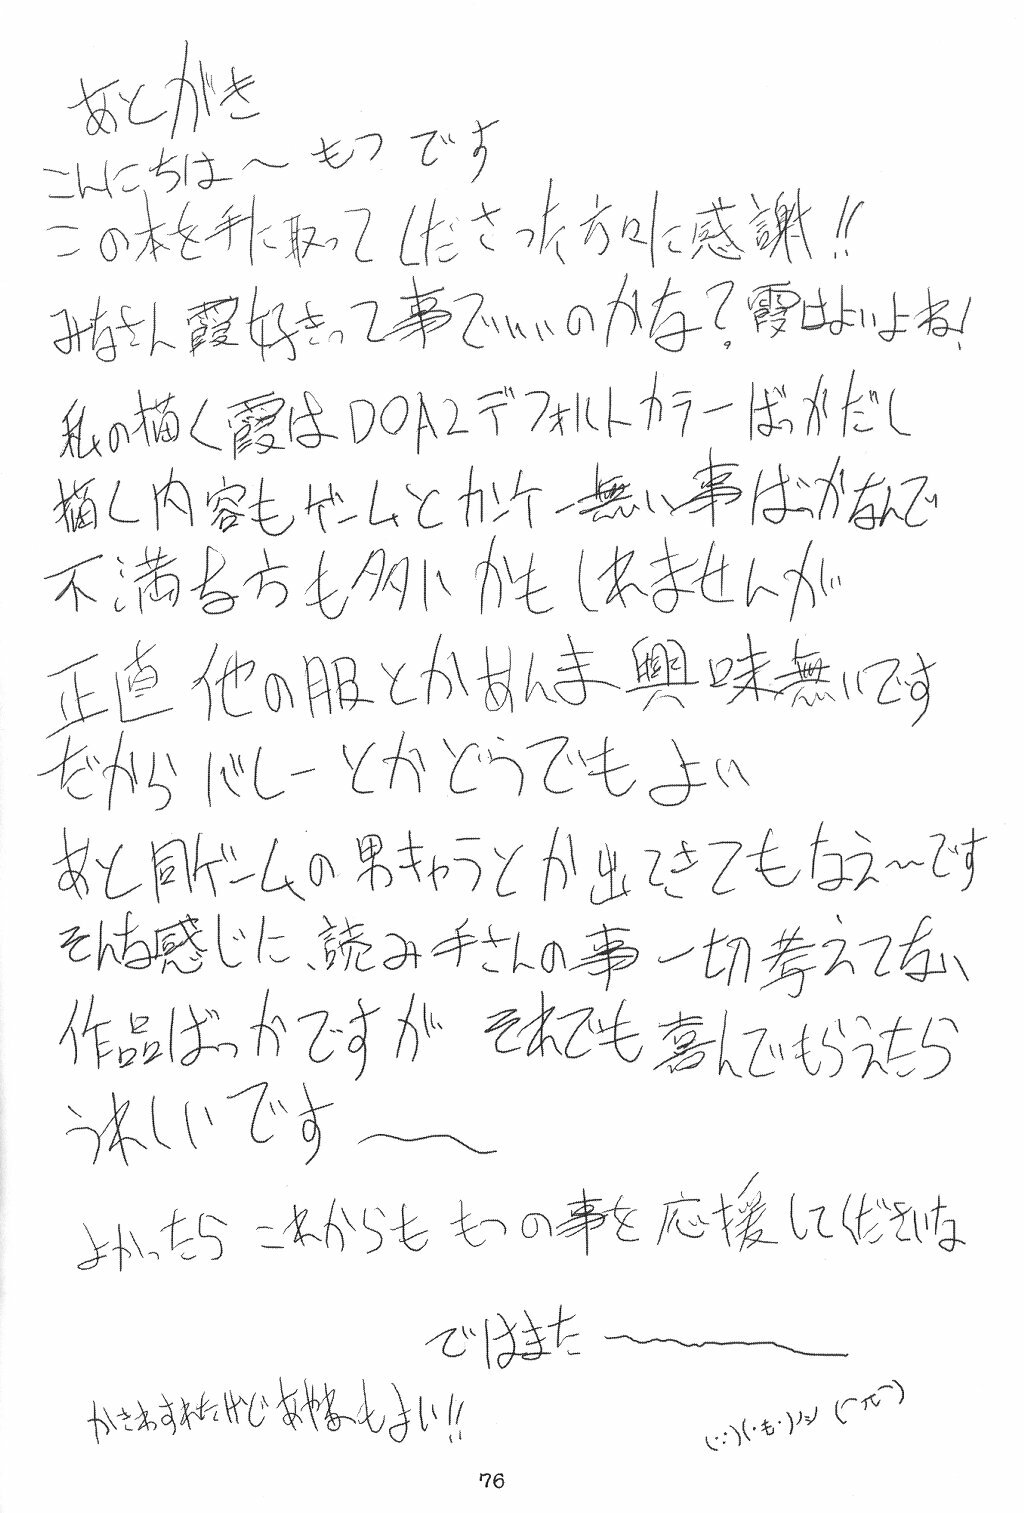 あとがき
こんにちは～もつです
この本を手に取ってくださった方々に感謝!!
みなさん霞好きって事でいいのかな?霞はよいよね!
私の描く霞はDOA2デフォルトカラーばっかだし
描く内容もゲームとカンケー無い事ばっかなんで
不満な方も多いかもしれませんが
正直他の服とかあんま興味無いです
だからバレーとかどうでもよい
あと同ゲームの男キャラとか出てきてもなえ～です
そんな感じに、読み手さんの事一切考えてない
作品ばっかですが それでも喜んでもらえたら
うれしいです～
よかったら これからも もつの事を応援してくださいな
ではまた～
かきわすれたけどあやねもよい!!
76